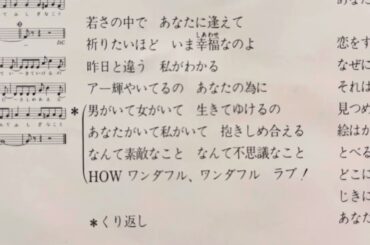 若さの中で　あなたに逢えて
祈りたいほど　いま幸福なのよ
しあわせ
昨日と違う　私がわかる
アー輝やいてるの　あなたの為に
*男がいて女がいて　生きてゆけるの
あなたがいて私がいて　抱きしめ合える
なんて素敵なこと　なんて不思議なこと
HOW ワンダフル、ワンダフル　ラブ！
*くり返し
あな
恋をす
なぜに
それは
見つめ
絵はか
とべる
どこに
じきに
あなた